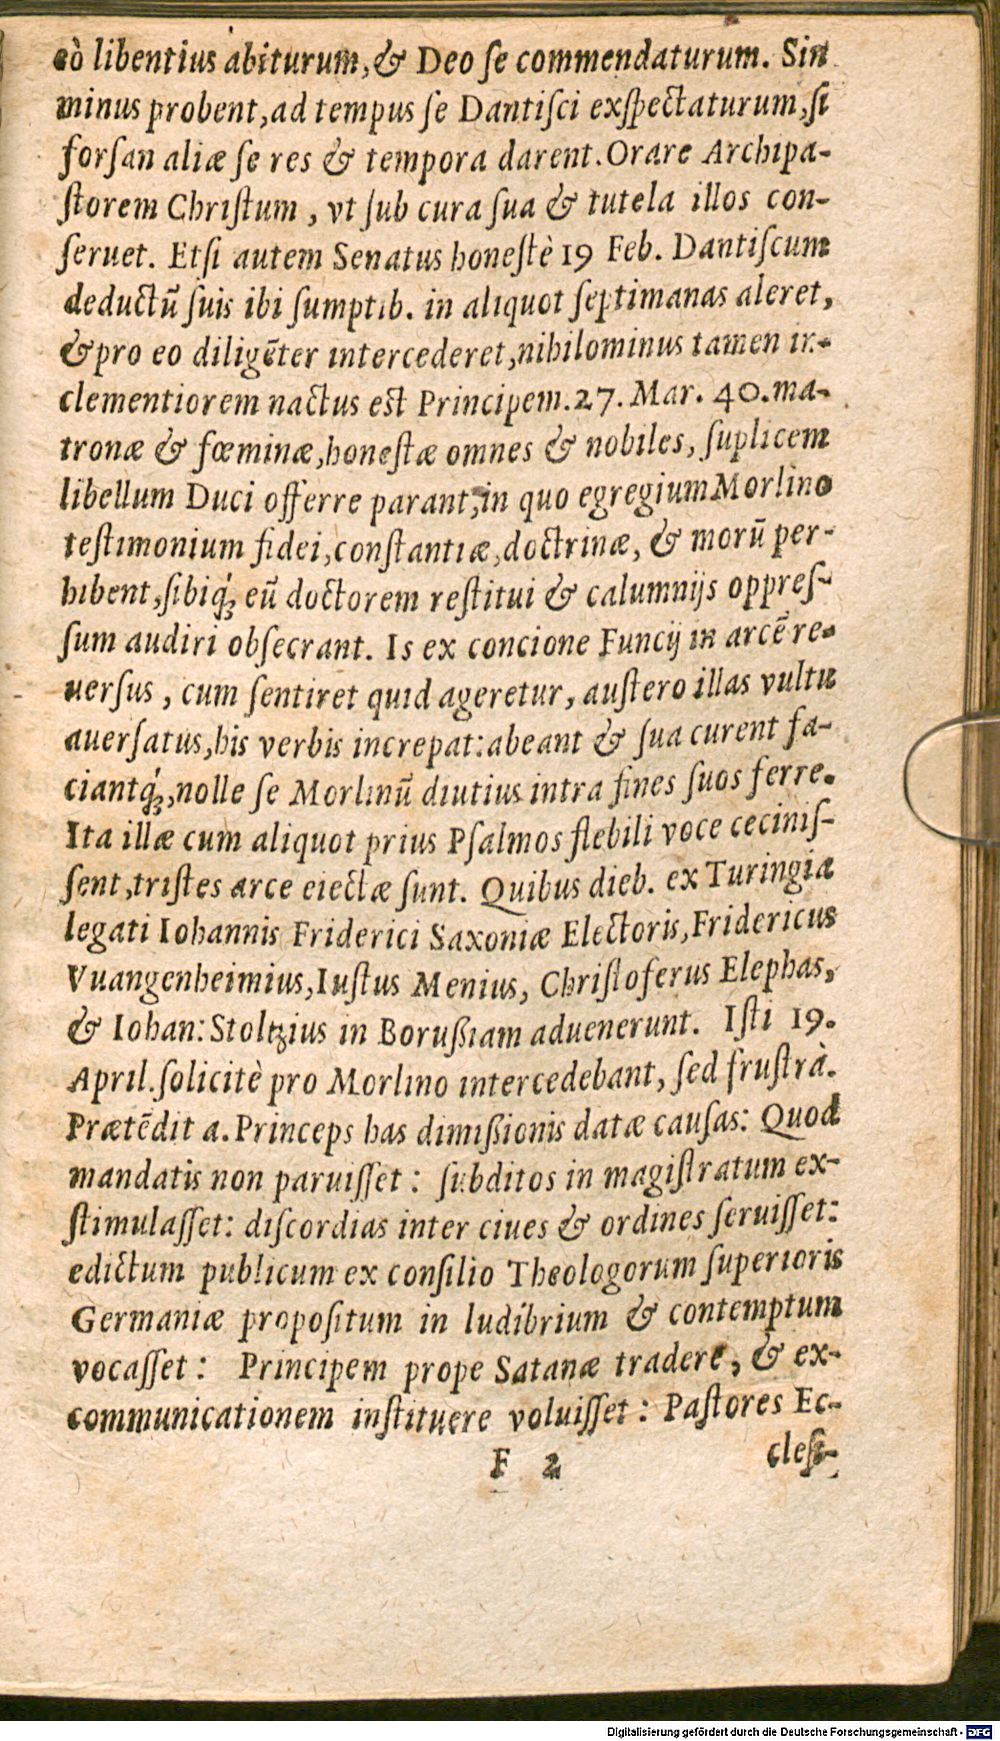 eò libentius abiturum, & Deo ſe commendaturum. Sin
minus probent, ad tempus ſe Dantiſci exſpectaturum, ſi
forſan aliæ ſe res & tempora darent. Orare Archipa-
ſtorem Chriſtum, vt ſub cura ſua & tutela illos con-
ſeruet. Etſi autem Senatus honeſtè 19 Feb. Dantiſcum
deductū ſuis ibi ſumptib. in aliquot ſeptimanas aleret,
& pro eo diligēter intercederet, nihilominus tamen in-
clementiorem nactus est Principem. 27. Mar. 40. ma-
tronæ & fœminæ, honeſtæ omnes & nobiles, ſuplicem
libellum Duci offerre parant, in quo egregium Morlino
teſtimonium fidei, conſtantiæ, doctrinæ, & morū per-
hibent, ſibiq́; eū doctorem reſtitui & calumnijs oppreſ-
ſum audiri obſecrant. Is ex concione Funcij in arcē re-
uerſus, cum ſentiret quid ageretur, auſtero illas vultu
auerſatus, his verbis increpat: abeant & ſua curent fa-
ciantq́;, nolle ſe Morlinū diutius intra fines ſuos ferre.
Ita illæ cum aliquot prius Pſalmos flebili voce ceciniſ-
ſent, triſtes arce eiectæ ſunt. Quibus dieb. ex Turingia
legati Iohannis Friderici Saxoniæ Electoris, Fridericus
Vuangenheimius, Iuſtus Menius, Chriſtoferus Elephas,
& Iohan: Stoltzius in Borußiam aduenerunt. Iſti 19.
April. ſolicitè pro Morlino intercedebant, ſed fruſtrà.
Prætēdit a. Princeps has dimißionis datæ cauſas: Quod
mandatis non paruiſſet: ſubditos in magiſtratum ex-
ſtimulaſſet: diſcordias inter ciues & ordines ſeruiſſet:
edictum publicum ex conſilio Theologorum ſuperioris
Germaniæ propoſitum in ludibrium & contemptum
vocaſſet: Principem prope Satanæ tradere, & ex-
communicationem inſtituere voluiſſet: Paſtores Ec-
F 2 cleſi-
Digitalisierung gefördert durch die Deutsche Forschungsgemeinschaft - DFG